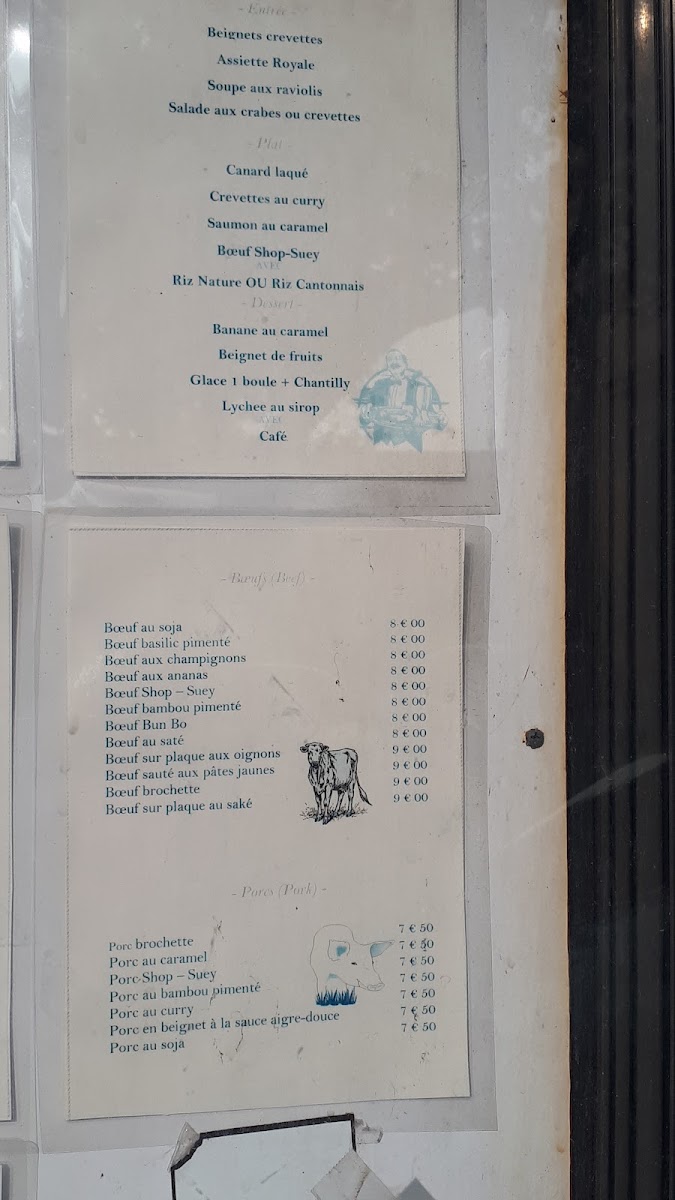 - Entrée -
Beignets crevettes
Assiette Royale
Soupe aux raviolis
Salade aux crabes ou crevettes
- Plat -
Canard laqué
Crevettes au curry
Saumon au caramel
Bœuf Shop-Suey
AVEC
Riz Nature OU Riz Cantonnais
- Dessert -
Banane au caramel
Beignet de fruits
Glace 1 boule + Chantilly
Lychee au sirop
AVEC
Café
- Bœufs (Beef) -
Bœuf au soja 8 € 00
Bœuf basilic pimenté 8 € 00
Bœuf aux champignons 8 € 00
Bœuf aux ananas 8 € 00
Bœuf Shop – Suey 8 € 00
Bœuf bambou pimenté 8 € 00
Bœuf Bun Bo 8 € 00
Bœuf au saté 8 € 00
Bœuf sur plaque aux oignons 9 € 00
Bœuf sauté aux pâtes jaunes 9 € 00
Bœuf brochette 9 € 00
Bœuf sur plaque au saké 9 € 00
- Porcs (Pork) -
Porc brochette 7 € 50
Porc au caramel 7 € 50
Porc Shop – Suey 7 € 50
Porc au bambou pimenté 7 € 50
Porc au curry 7 € 50
Porc en beignet à la sauce aigre-douce 7 € 50
Porc au soja 7 € 50